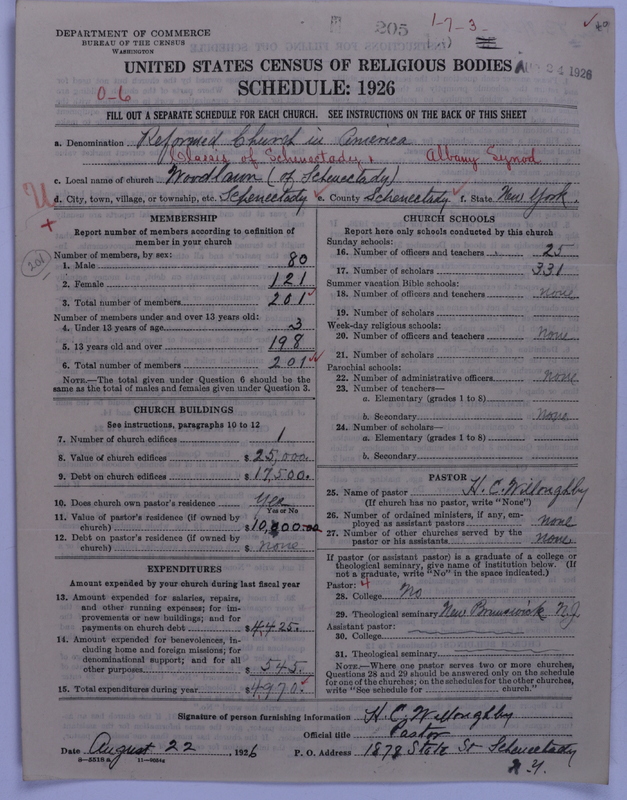 205 1-7-3
DEPARTMENT OF COMMERCE
BUREAU OF THE CENSUS
WASHINGTON
UNITED STATES CENSUS OF RELIGIOUS BODIES
24 1926
SCHEDULE: 1926
0-6
FILL OUT A SEPARATE SCHEDULE FOR EACH CHURCH. SEE INSTRUCTIONS ON THE BACK OF THIS SHEET
a. Denomination Reformed Church in America
Classis of Schenectady, Albany Synod
c. Local name of church Woodlawn (of Schenectady)
d. City, town, village, or township, etc. Schenectady e. County Schenectady f. State New York.
MEMBERSHIP
Report number of members according to definition of
member in your church
201
Number of members, by sex:
1. Male 80
2. Female 121
3. Total number of members 201
Number of members under and over 13 years old:
4. Under 13 years of age 3
5. 13 years old and over 198
6. Total number of members 201
NOTE.—The total given under Question 6 should be
the same as the total of males and females given under Question 3.
CHURCH BUILDINGS
See instructions, paragraphs 10 to 12
7. Number of church edifices 1
8. Value of church edifices $ 25,000.
9. Debt on church edifices $ 17,500.
10. Does church own pastor's residence Yes
Yes or No
11. Value of pastor's residence (if owned by
church) $ 10,000.00
12. Debt on pastor's residence (if owned by
church) $ None
EXPENDITURES
Amount expended by your church during last fiscal year
13. Amount expended for salaries, repairs,
and other running expenses; for im-
provements or new buildings; and for
payments on church debt $ 4425.
14. Amount expended for benevolences, in-
cluding home and foreign missions; for
denominational support; and for all
other purposes $ 545.
15. Total expenditures during year $ 4970.
CHURCH SCHOOLS
Report here only schools conducted by this church
Sunday schools:
16. Number of officers and teachers 25
17. Number of scholars 331
Summer vacation Bible schools:
18. Number of officers and teachers none
19. Number of scholars
Week-day religious schools:
20. Number of officers and teachers None
21. Number of scholars
Parochial schools:
22. Number of administrative officers None
23. Number of teachers—
a. Elementary (grades 1 to 8)
b. Secondary None
24. Number of scholars—
a. Elementary (grades 1 to 8)
b. Secondary
PASTOR
25. Name of pastor H. C. Willoughby
(If church has no pastor, write "None")
26. Number of ordained ministers, if any, em-
ployed as assistant pastors none
27. Number of other churches served by the
pastor or his assistants None
If pastor (or assistant pastor) is a graduate of a college or
theological seminary, give name of institution below. (If
not a graduate, write "No" in the space indicated.)
Pastor: 4
28. College No
29. Theological seminary New Brunswick N.J.
Assistant pastor:
30. College
31. Theological seminary
NOTE.—Where one pastor serves two or more churches,
Questions 28 and 29 should be answered only on the schedule
for one of the churches; on the schedules for the other churches,
write "See schedule for church."
Signature of person furnishing information H. C. Willoughby
Official title Pastor
Date August 22, 1926 P. O. Address 1878 State St Schenectady
8-5518a 11-9054g N. Y.